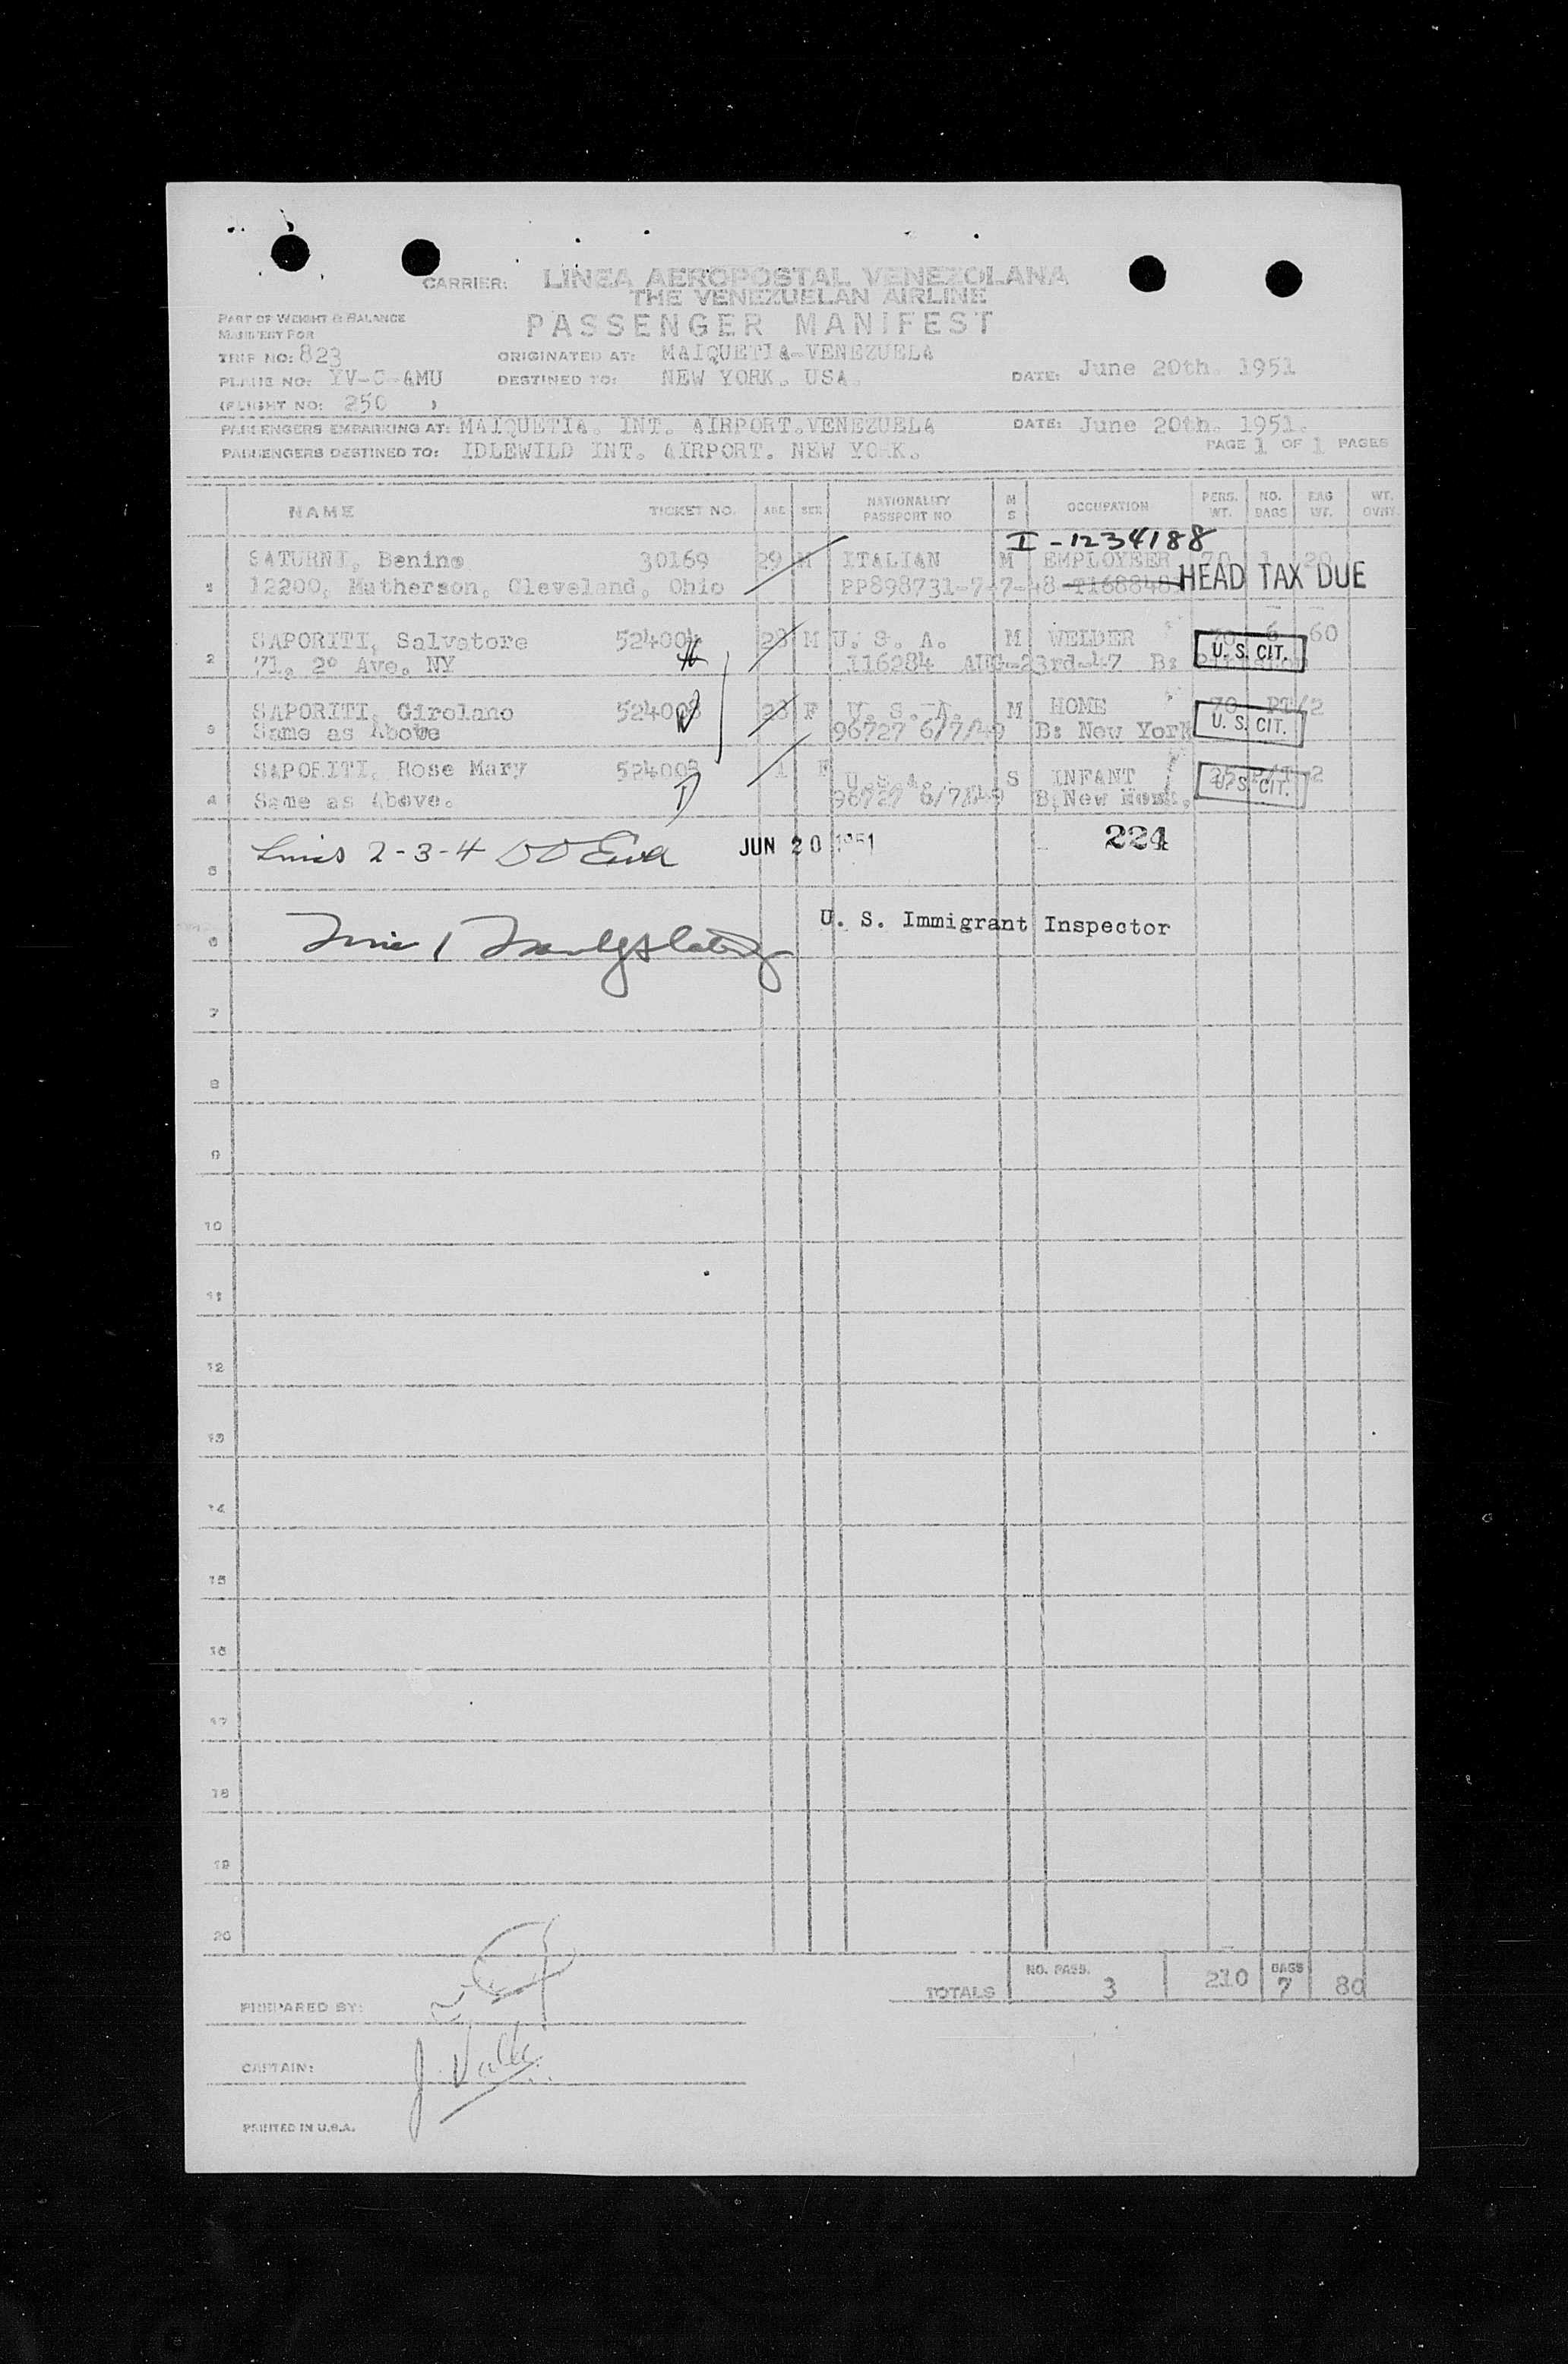 CARRIER: LINEA AEROPOSTAL VENEZOLANA
THE VENEZUELAN AIRLINE
PART OF WEIGHT & BALANCE
MANIFEST FOR
PASSENGER MANIFEST
TRIP NO: 823 ORIGINATED AT: MAIQUETIA-VENEZUELA
PLANE NO: YV-C-AMU DESTINED TO: NEW YORK. USA. DATE: June 20th. 1951
(FLIGHT NO: 250 )
PASSENGERS EMBARKING AT: MAIQUETIA. INT. AIRPORT.VENEZUELA DATE: June 20th. 1951.
PASSENGERS DESTINED TO: IDLEWILD INT. AIRPORT. NEW YORK. PAGE 1 OF 1 PAGES
NAME TICKET NO. AGE SEX NATIONALITY PASSPORT NO M S OCCUPATION PERS. WT. NO. BAGS BAG WT. WT. OVNT.
I-1234188
SATURNI, Benino 30169 29 M ITALIAN M EMPLOYEER 70 1 20
1 12200, Matherson, Cleveland, Ohio PP898731-7-7-48 HEAD TAX DUE
SAPORITI, Salvatore 524004 28 M U. S. A. M WELDER 70 6 60
2 71, 2º Ave. NY 116284 AUG-23rd-47 B: U. S. CIT.
SAPORITI, Girolano 524003 23 F U. S. A. M HOME 70 PT/2
3 Same as Above 96727 6/7/49 B: New York U. S. CIT.
SAPORITI, Rose Mary 524003 1 F U.S.A. S INFANT 2
4 Same as Above. 96727 6/7/49 B. New U. S. CIT.
5 Lines 2-3-4 JUN 20 1951 224
6 Line 1 U. S. Immigrant Inspector
7
8
9
10
11
12
13
14
15
16
17
18
19
20
TOTALS NO. PASS. 3 210 BAGS 7 80
PREPARED BY:
CAPTAIN: J. Valle
PRINTED IN U.S.A.